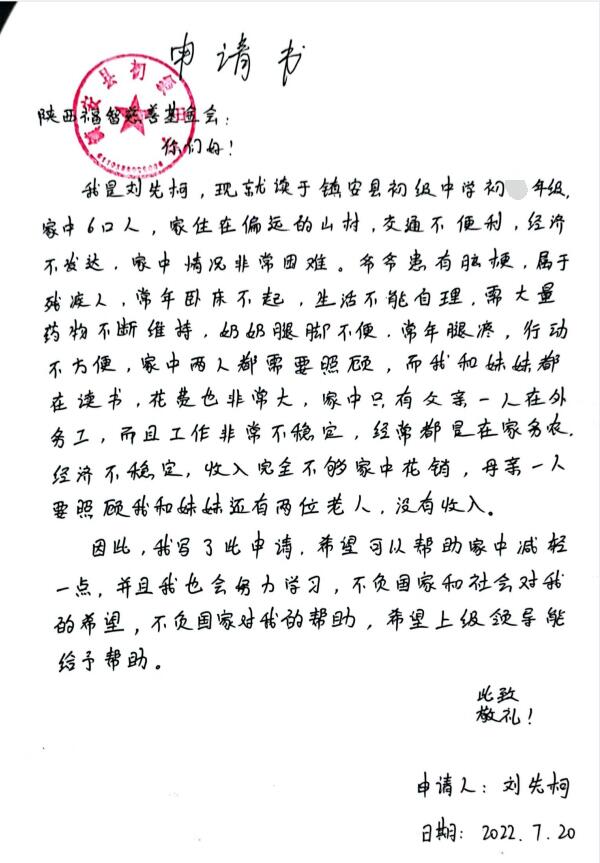 申请书
陕西福智慈善基金会：
你们好！
我是刘先柯，现就读于镇安县初级中学初年级，
家中6口人，家住在偏远的山村，交通不便利，经济
不发达，家中情况非常困难。爷爷患有脑梗，属于
残疾人，常年卧床不起，生活不能自理，需大量
药物不断维持，奶奶腿脚不便，常年腿疼，行动
不方便，家中两人都需要照顾，而我和妹妹都
在读书，花费也非常大，家中只有父亲一人在外
务工，而且工作非常不稳定，经常都是在家务农，
经济不稳定，收入完全不够家中花销，母亲一人
要照顾我和妹妹还有两位老人，没有收入。
因此，我写了此申请，希望可以帮助家中减轻
一点，并且我也会努力学习，不负国家和社会对我
的希望，不负国家对我的帮助，希望上级领导能
给予帮助。
此致
敬礼！
申请人：刘先柯
日期：2022.7.20